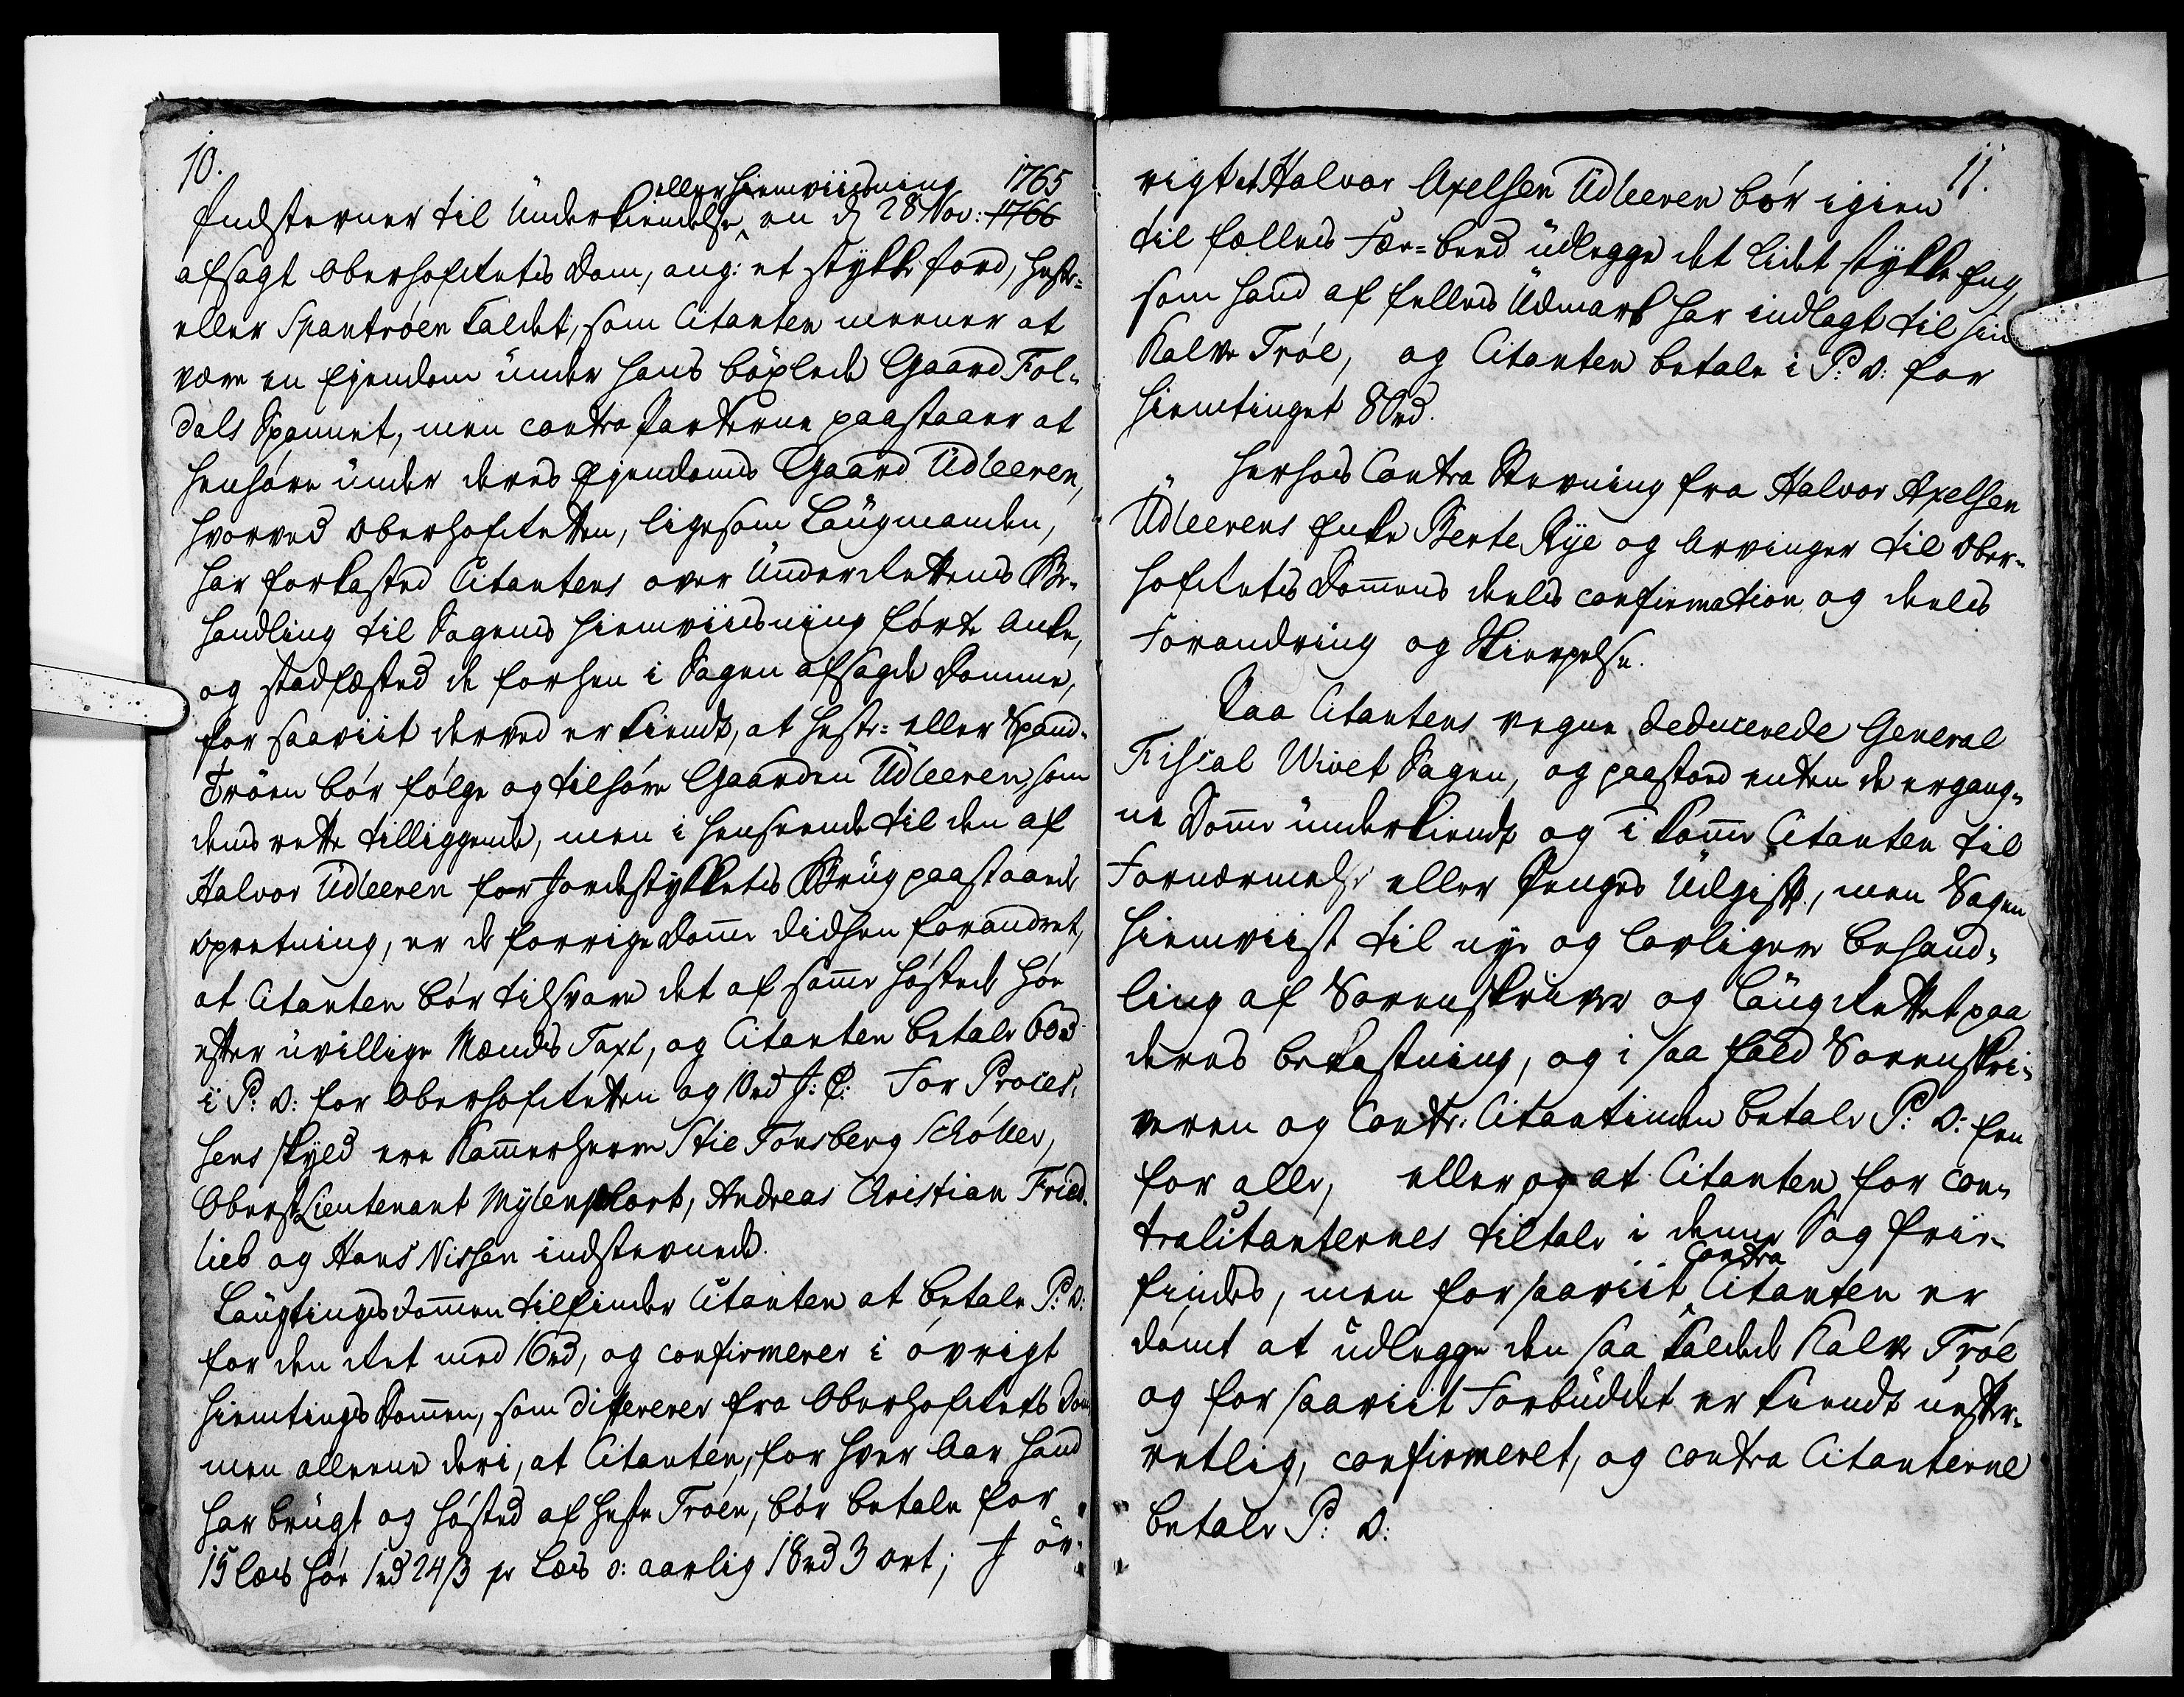 10.
eller hiemviisning 1765
Indstevner til Underkiendelse, en d 28 Nov: 1766
afsagt Oberhofretets Dom, ang: et stykke Jord, Heste-
eller Spantrøen kaldet, som Citanten meener at
være en Ejendom under hans böxlede Gaard Fol-
dals Spannet, men contraparterne paastaaer at
henhøre under deres Ejendoms Gaard Udleeren,
hvorved Oberhofretten, ligesom Laugmanden,
har forkasted Citantens over Underrettens Be-
handling til Sagens Hiemviisning førte Anke,
og stadfæsted de forhen i Sagen afsagde Domme,
for saaviit derved er kiendt, at Heste- eller Spand-
Tröen bör følge og tilhøre Gaarden Udleeren, som
dens rette tilliggende, men i henseende til den af
Halvor Udleeren for Jordestykketes Brug paastaaede
Opretning, er de forrige Domme didhen forandret,
at Citanten bör tilsvare det af samme høstede Høe
efter uvillige Mænds Taxt, og Citanten betale 60 rd
i P: O: for Oberhofretten og 10 rd J: C: For Proces-
sens skyld ere Kammerherre Stie Tönsberg Schøller,
Oberst Lieutenant Mylenphort, Andreas Christian Fried-
lieb og Hans Nissen indstevnede.
Laugtingsdommen tilfinder Citanten at betale P: O:
for den Ret med 16 rd, og confirmerer i øvrigt
Hiemtings Dommen, som differerer fra Oberhofrettets Dom
men alleene deri, at Citanten, for hver Aar hand
har brugt og høsted af Heste Tröen, bör betale for
15 læs Høe 1 rd 24 ß pr Læs o: aarlig 18 rd 3 ort; I øv-
11.
rigt at Halvor Axelsen Udleeren bör igien
til fælleds Fæe-beed udlegge det lidet stykke Eng,
som hand af felleds Udmark har indlagt til sin
Kalve Tröe, og Citanten betale i P: O: for
Hiemtinget 8 rd.
Herhos Contra Stevning fra Halvor Axelsen
Udleerens Enke Berte Rye og Arvinger til Ober-
hofretets Dommens deels confirmation og deels
Forandring og Skierpelse.
Paa Citantens vegne deducerede General
Fiscal Wivet Sagen, og paastod enten de ergang-
ne Domme underkiendt og i komme Citanten til
Fornærmelse eller Penges Udgift, men Sagen
hiemviist til nye og lovligere behand-
ling af Sorenskriver og Laugrettet paa
deres bekostning, og i saa fald Sorenskri-
veren og Contr: Citantinden betale P: O: een
for alle, eller og at Citanten for Con-
traCitanternes tiltale i denne Sag frie-
Contra
findes, men forsaaviit Citanten er
dømt at udlegge den saa kaldede Kalve Tröe
og for saaviit Forbuddet er kiendt uefter-
retlig, confirmeret, og Contra Citanterne
betale P: O: